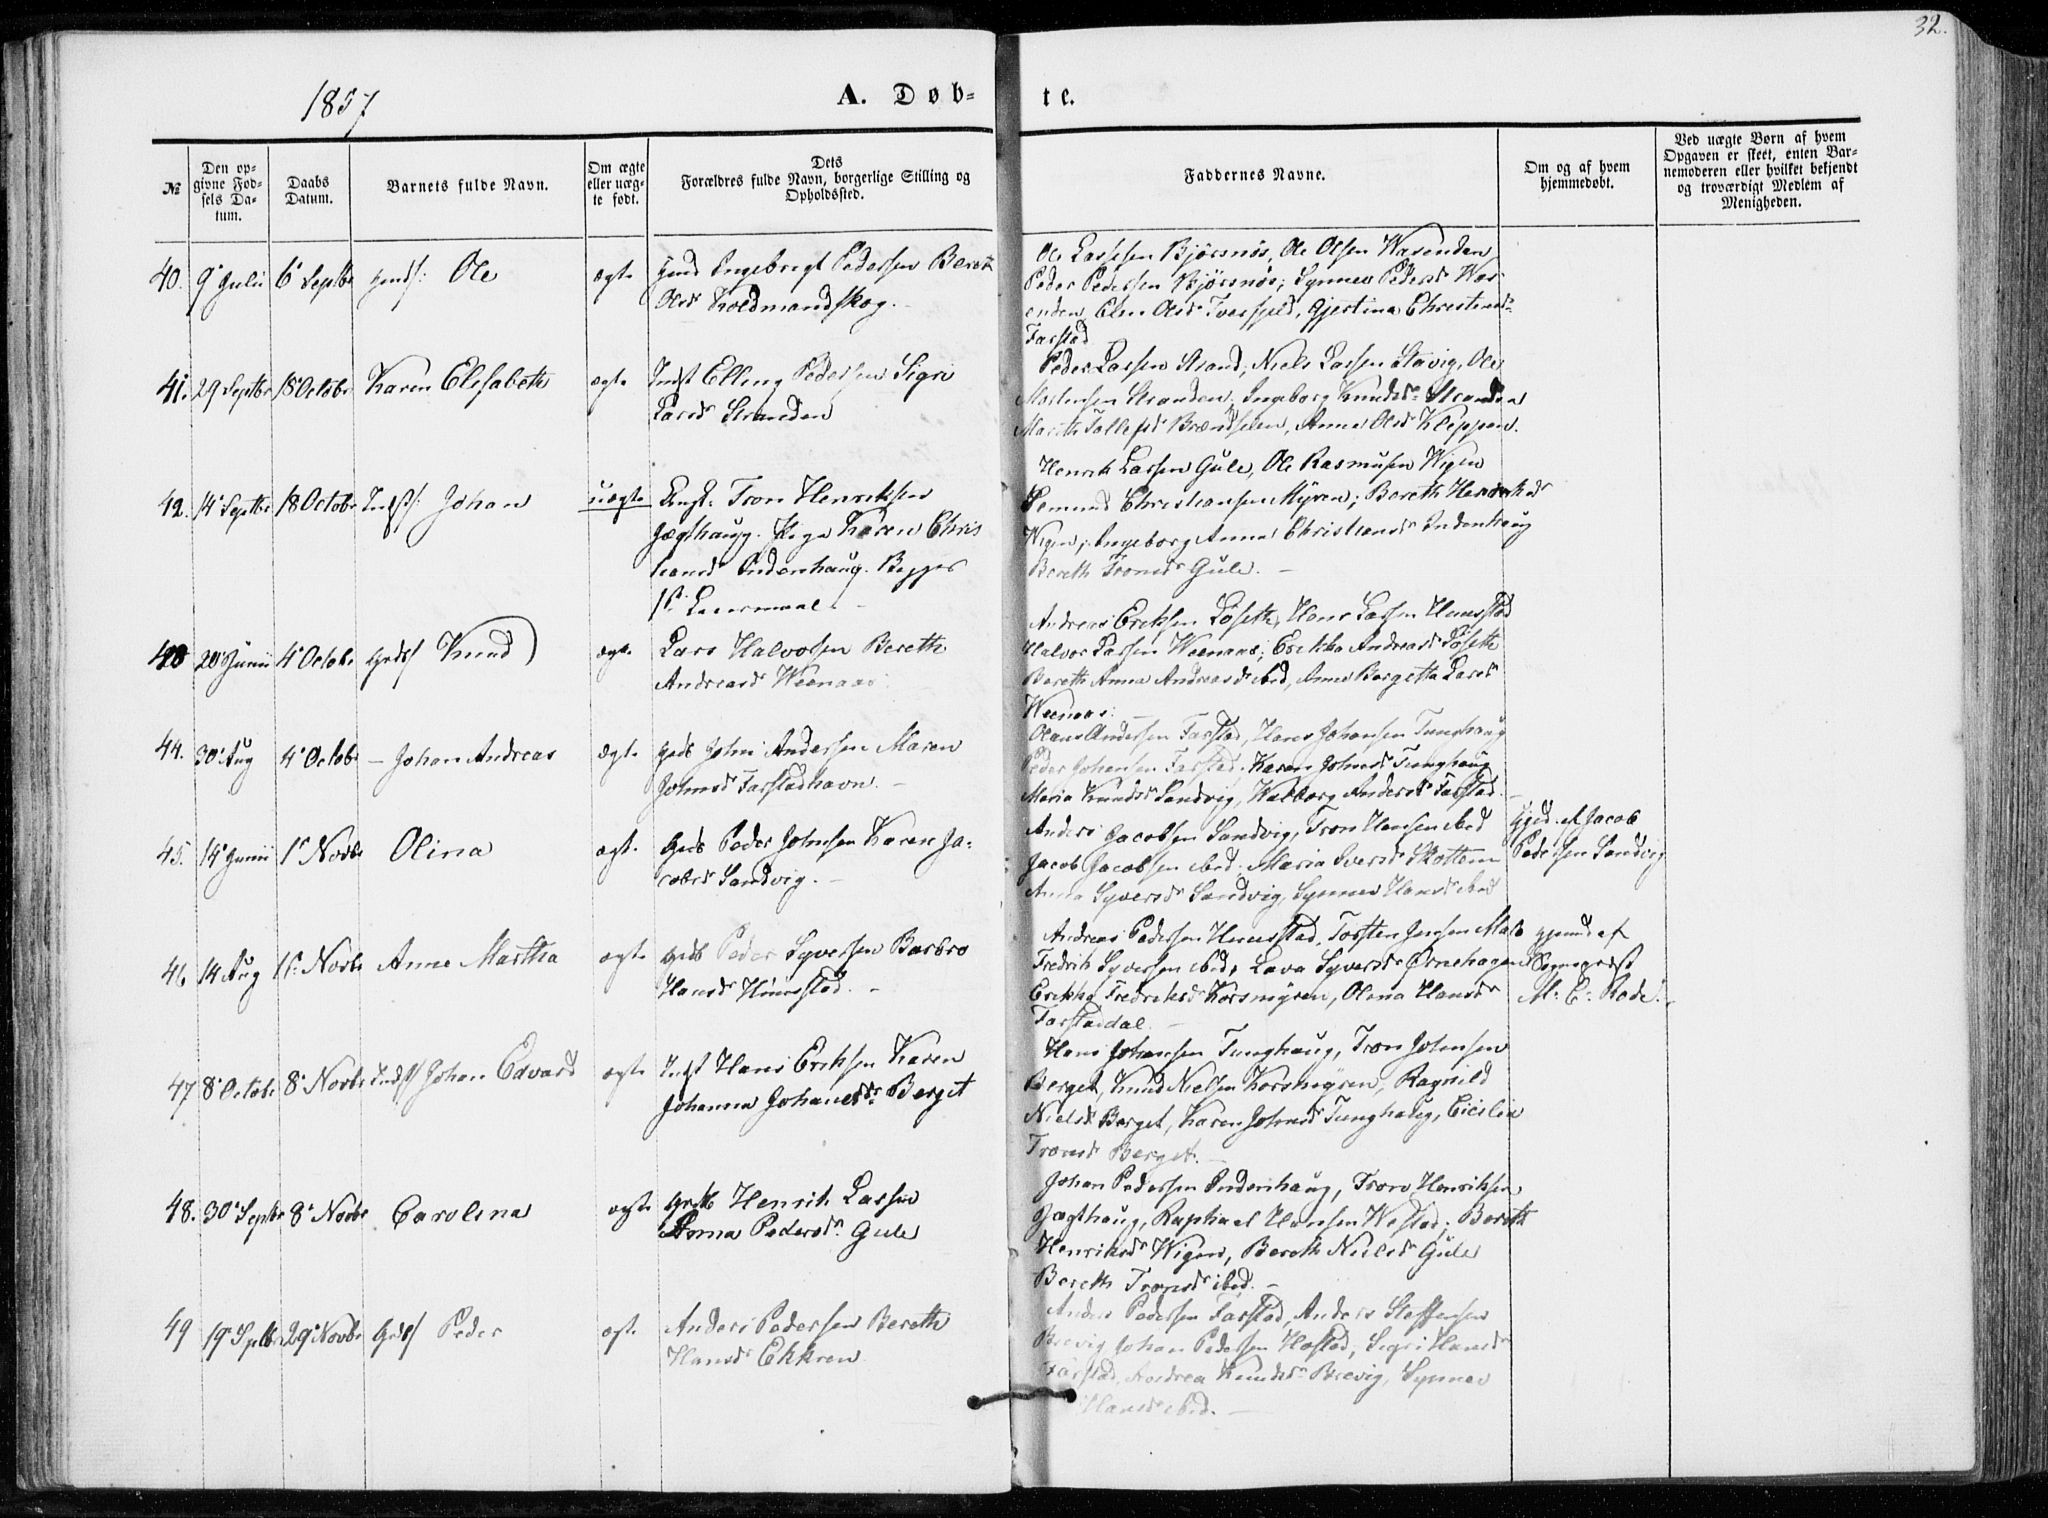 32.
1857
A. Døb-
te.
№
Den op-
givne Fød-
sels Da-
tum.
Daabs
Datum.
Barnets fulde Navn.
Om ægte
eller uæg-
te født.
Dets
Forældres fulde Navn, borgerlige Stilling og
Opholdssted.
Faddernes Navne.
Om og af hvem
hjemmedøbt.
Ved uægte Børn af hvem
Opgaven er skeet, enten Bar-
nemoderen eller hvilket bekjendt
og troværdigt Medlem af
Menigheden.
40. 9 Julii 6 Septbr Ole ægte
Engebregt Pedersen Bereth
Olsdr Holdmandskog.
Ole Larssen Bjørsnøs, Ole Olsen Wasenden
Peder Pedersen Bjørsnøs; Synnev Pedersdr Was-
enden, Elen Olsdr Tverfjeld, Gjertina Christensdr
Farstad
41. 29 Septbr 18 Octobr Karen Elisabeth ægte
Indst Elling Pedersen Sigri
Larsdr Stranden
Peder Larssen Strand, Niels Larssen Stavig, Ole
Mortensen Stranden, Ingeborg Knudsdr Stranden
Marith Tollefsdr Brændseten, Anne Olsdr Kleppen.
42. 14 Septbr 18 Octobr Indst: Johan uægte
Ungk. Tron Henriksen
Jægthaug. Pige Karen Chris
tiansdr Indenhaug. Begges
1st Leiermaal.
Henrik Larssen Gule, Ole Rasmusen Wigen
Semund Christiansen Myren; Bereth Henriksdr
Wigen; Ingeborg Anna Christiansdr Indenhaug
Bereth Tronsdr Gule.
43 20 Junii 4 Octobr Knud ægte
Lars Halvorsen Bereth
Andreasdr Weenaas
Andreas Eriksen Løseth, Hans Larssen Hunstad
Halvor Larssen Weenaas; Erikka Andreasdr Løseth
Bereth Anna Andreasdr ibid, Anne Bergetta Larsdr
Weenaas.
44. 30 Aug 4 Octobr – Johan Andreas ægte
Gdb John Andersen Maren
Johnsdr Farstadhavn.
Olaus Andersen Farstad, Hans Johansen Tunghaug
Peder Johansen Farstad; Karen Johnsdr Tunghaug
Maria Knudsdr Sandvig, Walborg Andersdr Farstad.
45. 14 Junii 1 Novbr Olina ægte
Gdb Peder Johnsen Karen Ja-
cobsdr Sandvig.
Anders Jacobsen Sandvig, Tron Hansen ibid
Jacob Jacobsen ibid. Maria Iversdr Skottem
Anna Syversdr Sandvig, Synnev Hansdr ibid
Hjd. af Jacob
Pedersen Sandvig
46 14 Aug 1st Novbr Anne Martha ægte
Gdb Peder Syversen Barbro
Hansdr Hunestad.
Andreas Pedersen Hunestad, Torsten Jensen Malo
Fredrik Syversen ibid, Lava Syversdr Ørnehagen
Erikka Fredriksdr Korsmyren, Olina Hansdr
Farstaddal.
af
Sognepræst
M. E. Rode.
47 8 Octobr 8 Novbr Indst/ Johan Edvard ægte
Indst Hans Eriksen Karen
Johanna Johanesdr: Berget
Hans Johansen Tunghaug, Tron Johnsen
Berget, Knud Nielsen Korsmyren, Ragnild
Nielsdr Berget, Karen Johnsdr Tunghaug, Cicilia
Tronsdr Berget.
48. 30 Septbr 8 Novbr Carolina ægte
Gdb Henrik Larsen
Anna Pedersdr. Gule
Johan Pedersen Indenhaug, Tron Henriksen
Jægthaug, Raphael Hansen Westad; Bereth
Henriksdr Wigen, Bereth Nielsdr Gule
Bereth Tronsdr ibid.
49 19 Septbr 29 Novbr Peder ægte
Anders Pedersen Bereth
Hansdr Ekkren
Anders Pedersen Farstad, Anders Steffensen
Brevig Johan Pedersen Hostad, Sigri Hansdr
Farstad, Andrea Knudsdr Brevig, Synnev
Hansdr ibid.